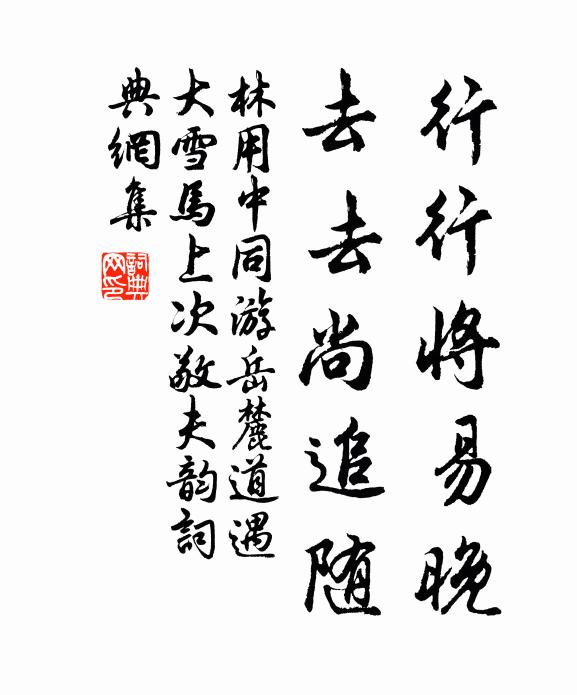 行行將易晚
去去尚追随
林用中同游岳麓道遇
大雪馬上次敬夫韵詞
典網集
詞典
网印